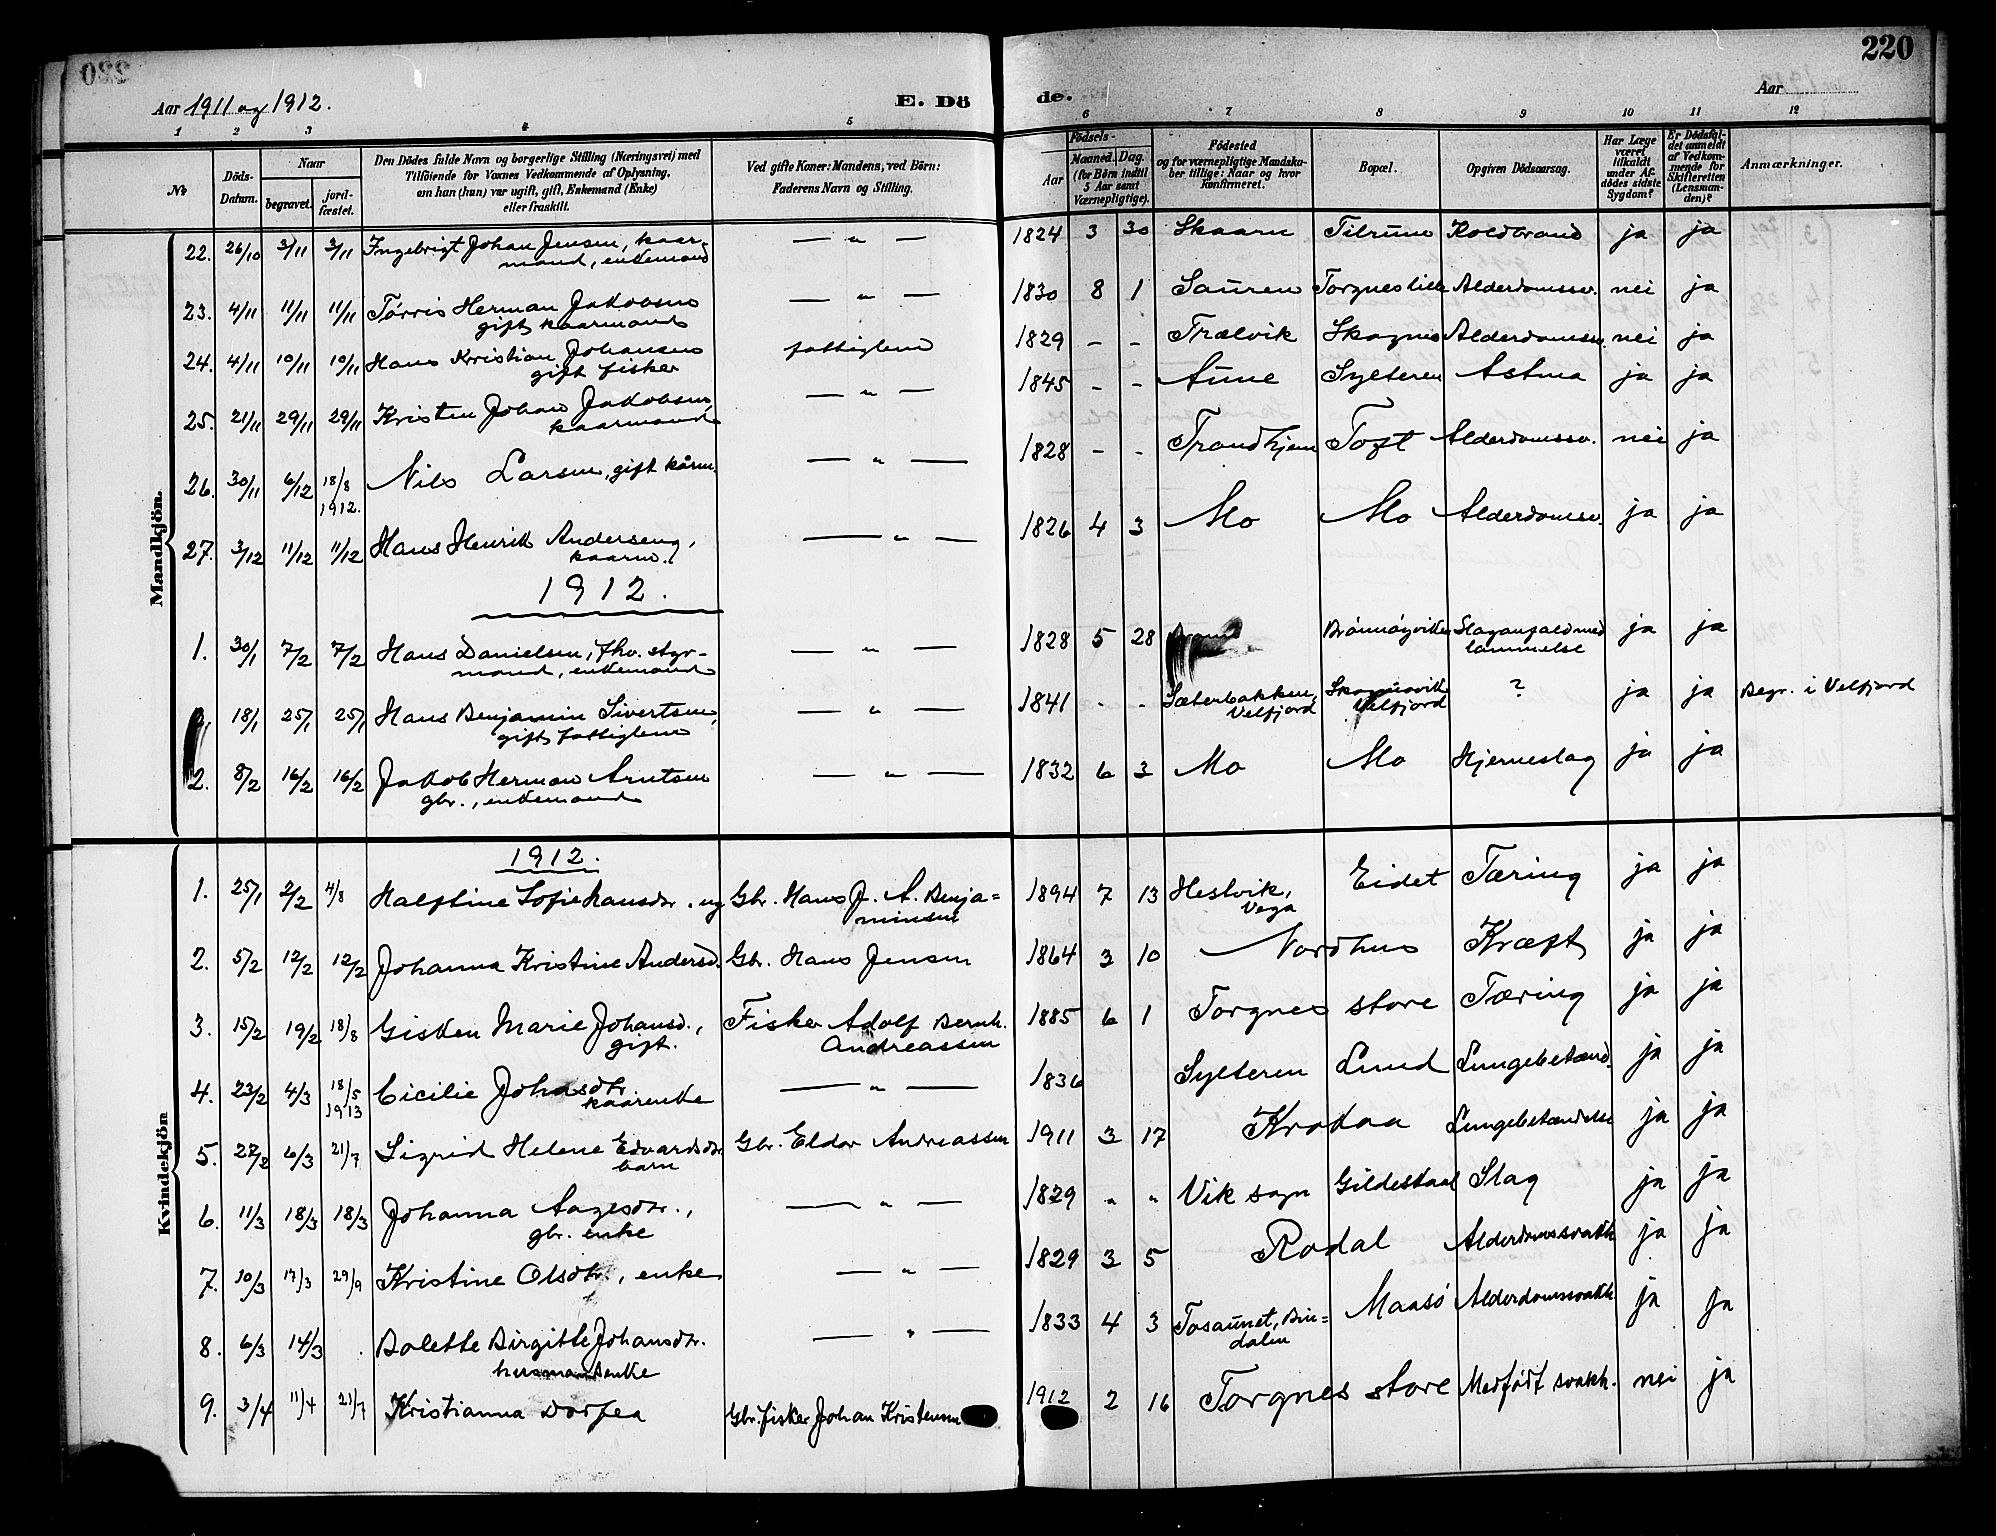 220
Aar 1911 og 1912. E. Dö de. Aar
1 2 3 4 5 6 7 8 9 10 11 12
No
Döds-Datum.
Naar
begravet. jord-fæstet.
Den Dödes fulde Navn og borgerlige Stilling (Næringsvei) med
Tilföiende for Voxnes Vedkommende af Oplysning,
om han (hun) var ugift, gift, Enkemand (Enke)
eller fraskilt.
Ved gifte Koner: Mandens, ved Börn:
Faderens Navn og Stilling.
Födsels-
Aar Maaned. Dag.
(for Börn indtil
5 Aar samt
Værnepligtige).
Födested
og for værnepligtige Mandska-
ber tillige: Naar og hvor
konfirmeret.
Bopæl.
Opgiven Dödsaarsag.
Har Læge
været
tilkaldt
under Af-
dödes sidste
Sygdom?
Er Dödsfal-
det anmeldt
af Vedkom-
mende for
Skifteretten
(Lensman-
den)?
Anmærkninger.
Mandkjön.
22. 26/10 3/11 3/11 Ingebrigt Johan Jensen, kaar-
mand, enkemand — " — 1824 3 30 Skaarn Tilrum Koldbrand ja ja
23. 4/11 11/11 11/11 Tórris Herman Jakobsen
gift kaarmand — " — 1830 8 1 Sauren Torgnes lille Alderdomssv. nei ja
24. 4/11 10/11 10/11 Hans Kristian Johansen
gift fisker fattiglem 1829 - - Trælvik Skognes Alderdomssv. nei ja
25. 21/11 29/11 29/11 Kristen Johan Jakobsen,
kaarmand — " — 1845 - - Aune Sylteren Astma ja ja
26. 30/11 6/12 18/8
1912. Nils Larsen, gift kårm. — " — 1828 - - Trondhjem Toft Alderdomssv. nei ja
27. 3/12 11/12 11/12 Hans Henrik Andersen,
kaarm. — " — 1826 4 3 Mo Mo Alderdomssv. ja ja
1912.
1. 30/1 7/2 7/2 Hans Danielsen, fhv. styr-
mand, enkemand — " — 1828 5 28 Brønnøyviken Slaganfald med
lammelse ja ja
18/1 25/1 25/1 Hans Benjamin Sivertsen,
gift, fattiglem — " — 1841 - - Sæterbakken,
Velfjord Velfjord ? ja ja Begr. i Velfjord
2. 8/2 16/2 16/2 Jakob Herman Arntsen
gbr., enkemand — " — 1832 6 3 Mo Mo Hjerneslag ja ja
Kvindekjön
1912.
1. 25/1 2/2 4/8 Halftine Sofie Hansdtr. ug Gbr. Hans J. A. Benja-
minsen 1894 7 13 Hestvik,
Vega Eidet Tæring ja ja
2. 5/2 12/2 12/2 Johanna Kristine Andersd. Gbr. Hans Jensen 1864 3 10 Nordhus Kræft ja ja
3. 15/2 19/2 18/8 Gisken Marie Johansd.,
gift. Fisker Adolf Bernh.
Andreassen 1885 6 1 Torgnes store Tæring ja ja
4. 23/2 4/3 18/5
1913 Cicilie Johasdtr
kaarenke — " — 1836 Sylteren Lund Lungebetænd. ja ja
5. 27/2 6/3 21/7 Sigrid Helene Edvardsdtr
barn Gbr. Eldor Andreassen 1911 3 17 Krokaa Lungebetændelse ja ja
6. 11/3 18/3 18/3 Johanna Aagesdtr.,
gbr. enke — " — 1829 " " Vik sogn Gildestad Slag ja ja
7. 10/3 17/3 29/9 Kristine Olsdtr., enke — " — 1829 3 5 Rodal Alderdomssvakh ja ja
8. 6/3 14/3 . Bolette Birgitte Johansdtr.
husmandsenke — " — 1833 4 3 Tosaunet, Bin-
dalen Maasø Alderdomssvakh ja ja
9. 3/4 11/4 21/7 Kristianna Dorfea Gbr. fisker Johan Kristensen 1912 2 16 Torgnes store Medfødt svakh. nei ja